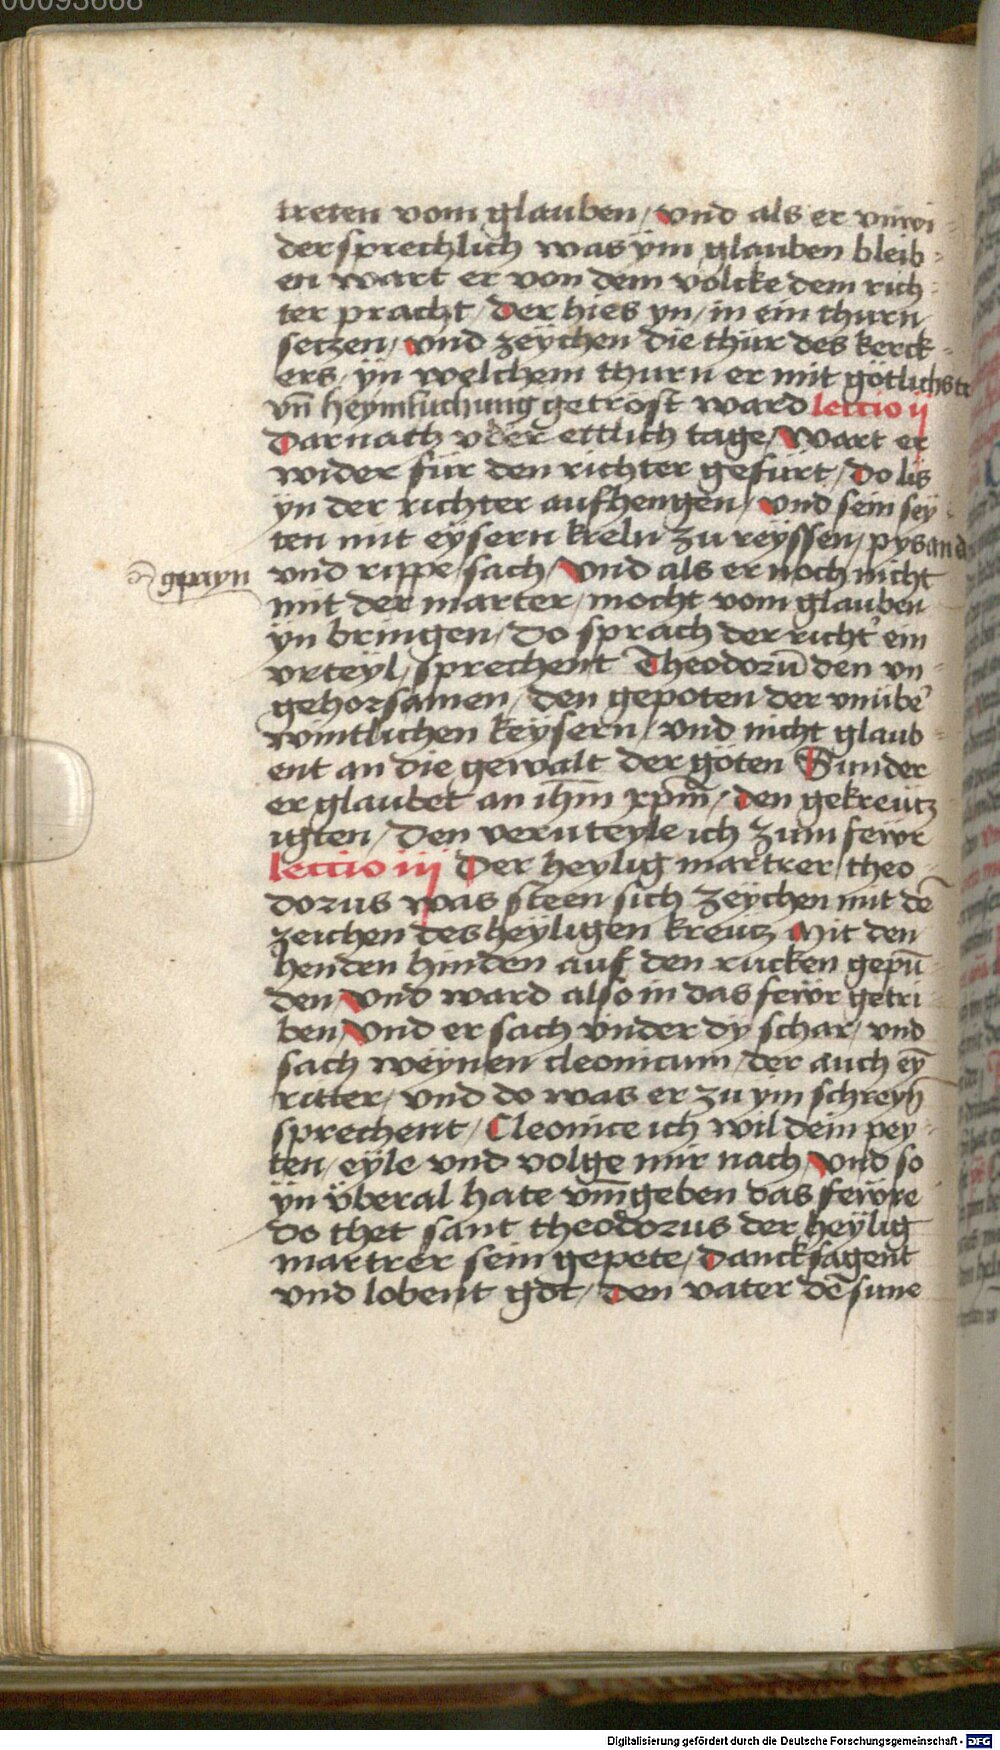 00093668
treten vom glauben / vnd als er vnwi-
dersprechlich was ym glauben bleib-
en wart er von dem volcke dem rich-
ter pracht / Der hies yn / in ein thurn
setzen / vnd zeÿchen die thür des kerck-
ers / ÿn welchem thurn er mit götlichstr
vn̄ heymsuchung getröst ward lectio ij
Darnach vber ettlich tage / Wart er
wider für den richter gefürt / Do lis
ÿn der richter aufhengen / vnd sein seÿ-
ten mit eÿsern kreln zu reÿssen / pys an d
gepayn vnd rippe / sach / Vnd als er noch nicht
mit der marter / mocht vom glauben
ÿn bringen / Do sprach der richt' ein
vrteÿl / sprechent Theodorū den vn-
gehorsamen / den gepoten der vnübe'
wintlichen keÿsern / vnd nicht glaub-
ent an die gewalt der göten Sunder
er glaubet an ihm̄ xp̄m / den gekreütz
igten / Den veruteyle ich zum fewr
lectio iij Der heylig martrer / theo-
dorus was steen sich zeÿchen mit dē
zeichen des heÿligen kreütz Mit den
henden hinden auf den rucken gepū-
den / vnd ward also in das fewr getri-
ben / Vnd er sach vnder dy schar / vnd
sach weÿnen cleonicum / der auch eȳ
ritter / vnd do was er zu ym schreyn̄
sprechent / Cleonice ich wil dein pey-
ten / eÿle vnd volge mir nach / Vnd so
ÿn v̈beral hate vm̄geben das fewre
Do thet sant theodorus der heÿlig
martrer sein gepete / Dancksagent
vnd lobent got / Den vater dē sune
Digitalisierung gefördert durch die Deutsche Forschungsgemeinschaft - DFG